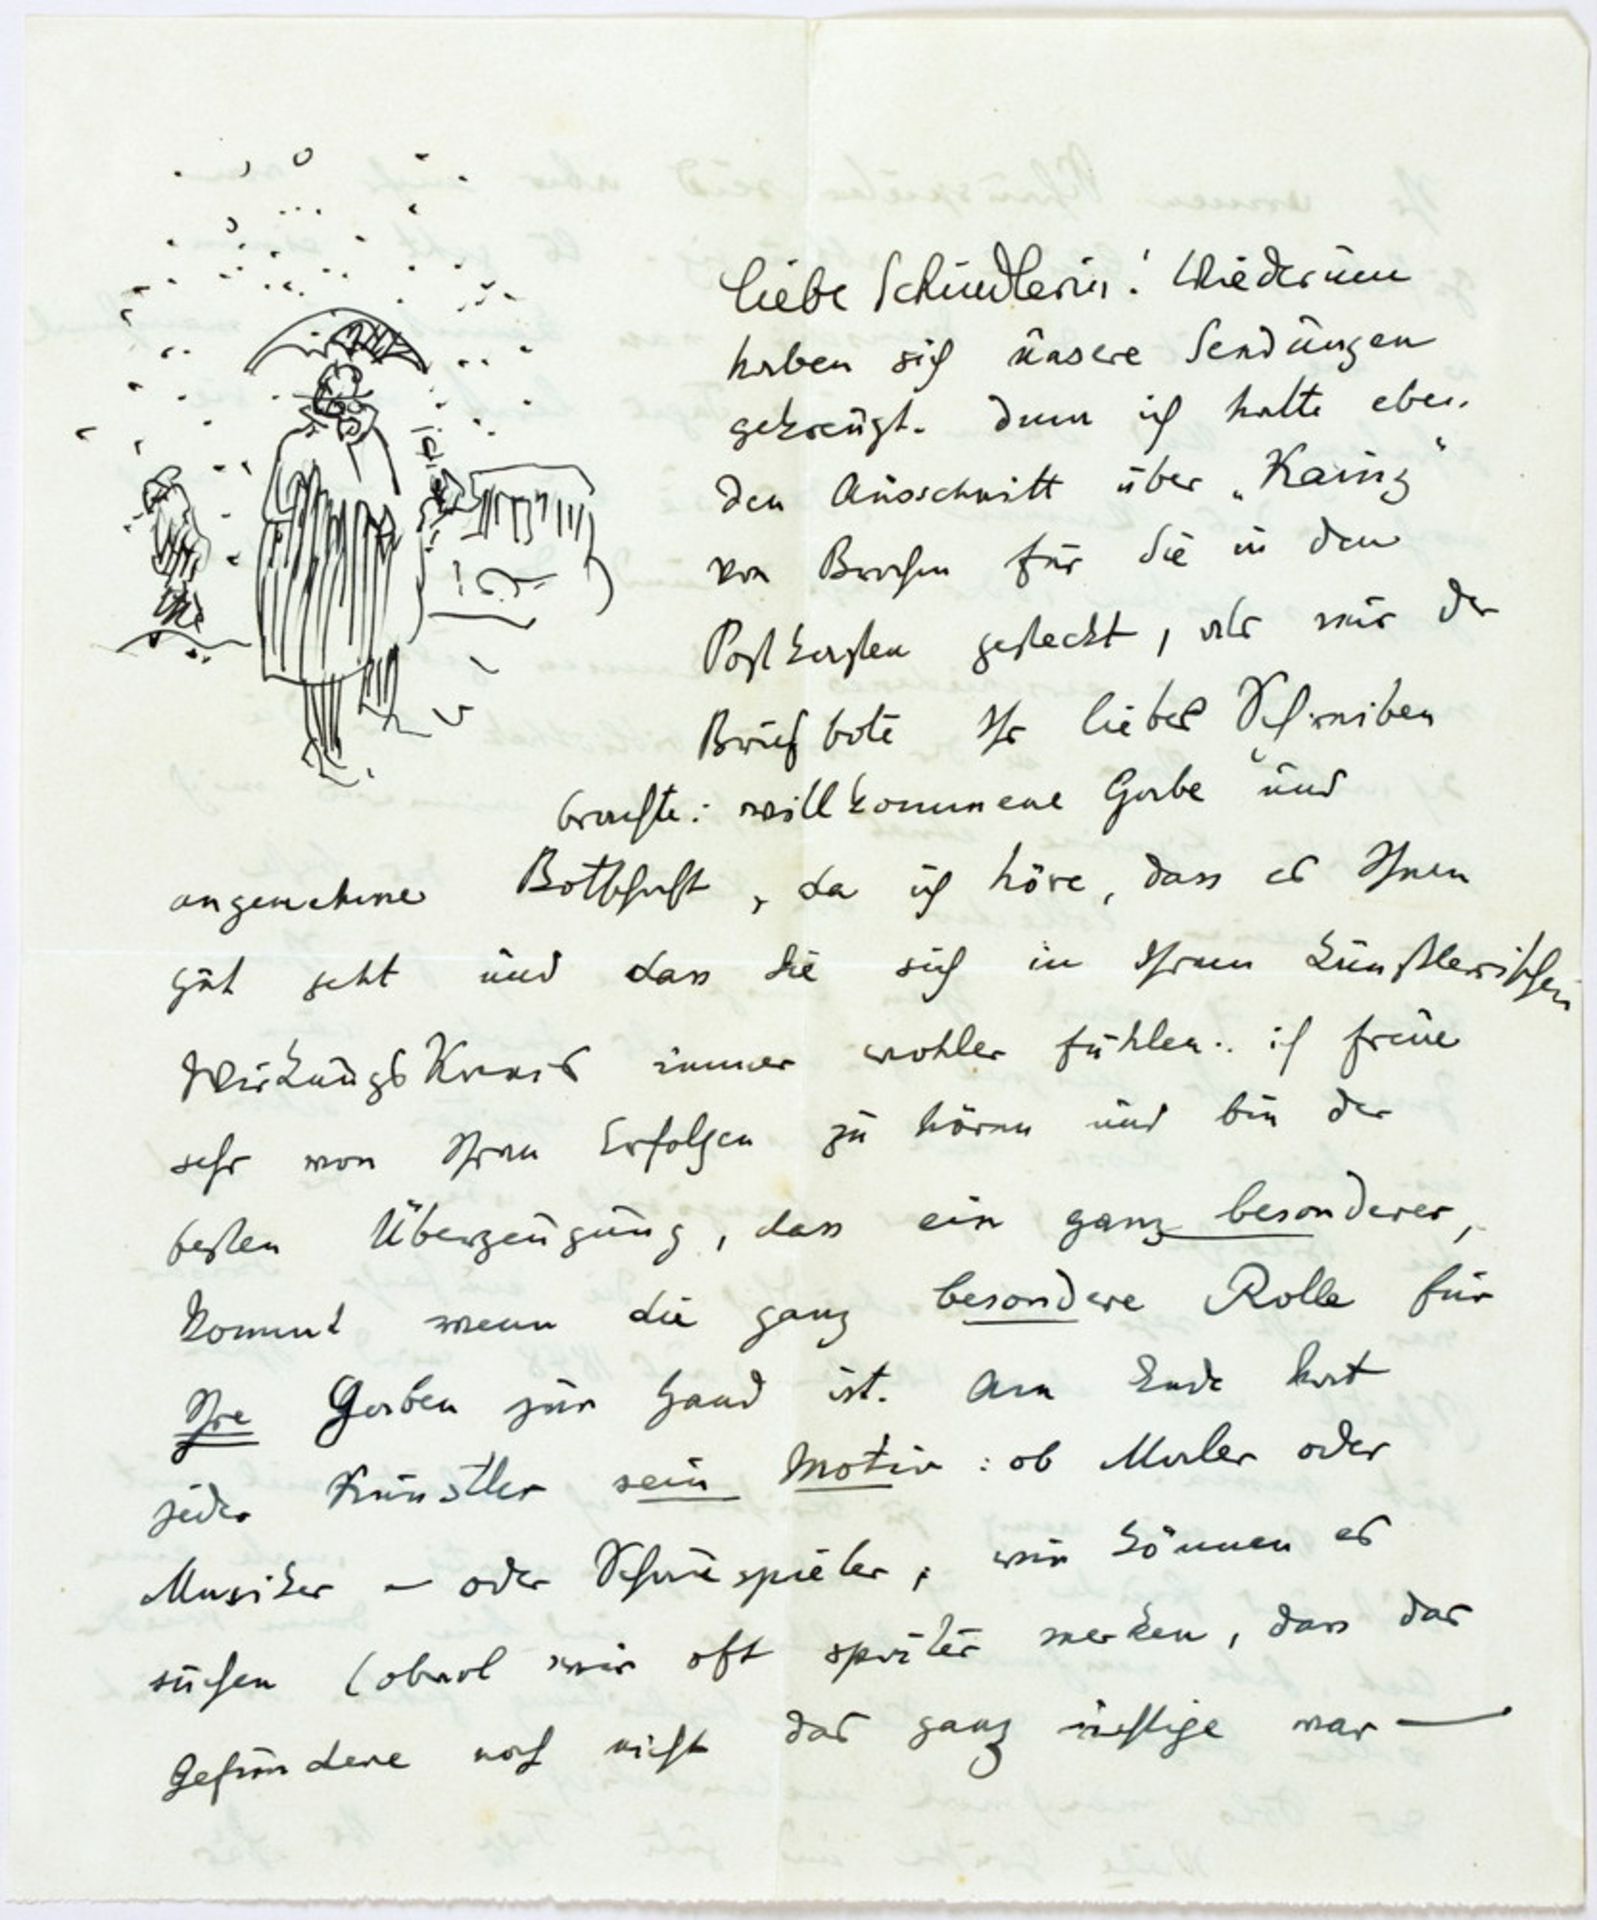 Liebe Schindlerin! Wiederum
haben sich unsere Sendungen
gekreuzt. Denn ich hatte eben
den Ausschnitt über „Kainz"
von für Sie in den
Postkasten gesteckt, als mir der
Briefbote Ihr liebes Schreiben
brachte: willkommene Gabe und
angenehme Bothschaft, da ich höre, dass es Ihnen
gut geht und dass Sie sich in Ihrem künstlerischen
Wirkungskreis immer wohler fühlen. ich freue
sehr von Ihren Erfolgen zu hören und bin der
festen Überzeugung, dass ein ganz besonderer,
kommt wenn die ganz besondere Rolle für
Ihre Gaben zur Hand ist. Am Ende hat
jeder Künstler sein Motiv: ob Maler oder
Musiker – oder Schauspieler, wir können es
suchen (obwol wir oft später merken, dass das
Gefundene noch nicht das ganz richtige war —